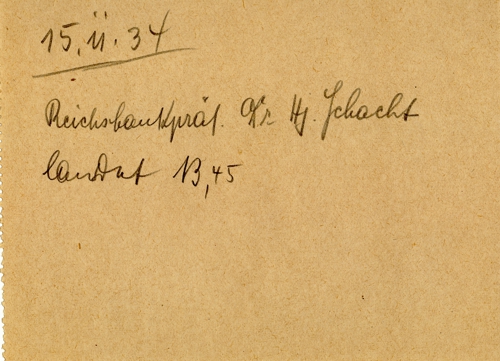 15.11.34
Reichsbankpräs. Dr. Hj. Schacht
landet 13,45